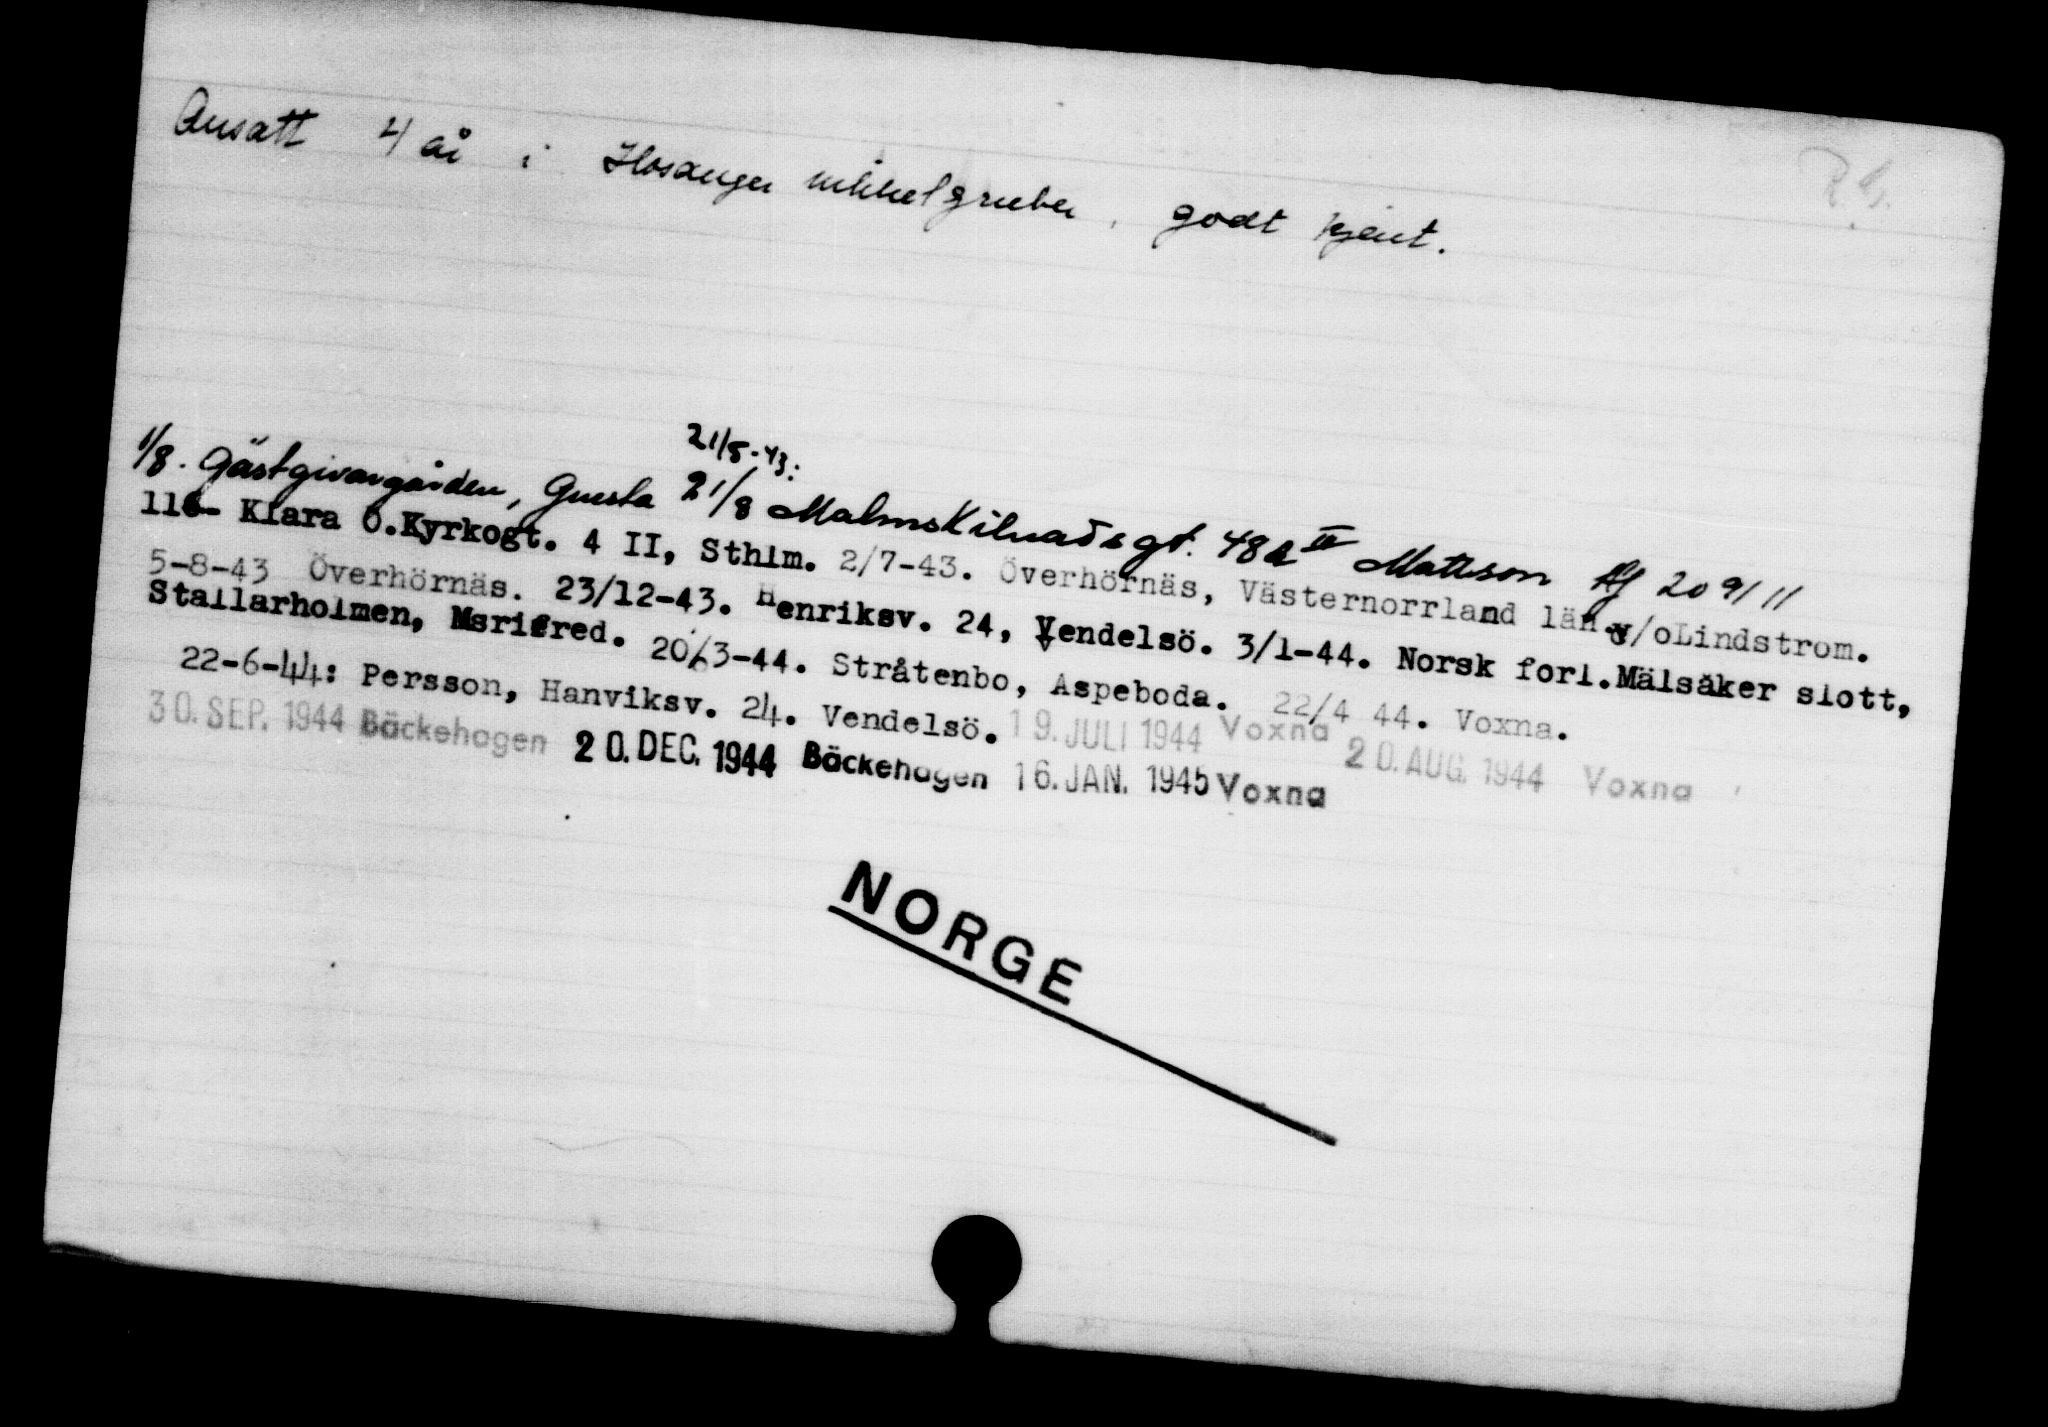 R.G.
Ansatt 4 år i Hosanger nikkelgruber, godt kjent.
21/8-43:
1/8. Gästgivargården, Gnesta 21/8 Malmskilnadsgt. 48A III Mattsson Tlf 20 91 11
116- Klara Ö.Kyrkogt. 4 II, Sthlm. 2/7-43. Överhörnäs, Västernorrland län. c/oLindstrom.
5-8-43 Överhörnäs. 23/12-43. Henriksv. 24, Vendelsö. 3/1-44. Norsk forl.Mälsåker slott,
Stallarholmen, Msrifred. 20/3-44. Stråtenbo, Aspeboda. 22/4 44. Voxna.
22-6-44: Persson, Hanviksv. 24. Vendelsö. 19. JULI 1944 Voxna 20. AUG. 1944 Voxna
30. SEP. 1944 Bäckehagen 20. DEC. 1944 Bäckehagen 16. JAN. 1945 Voxna
NORGE